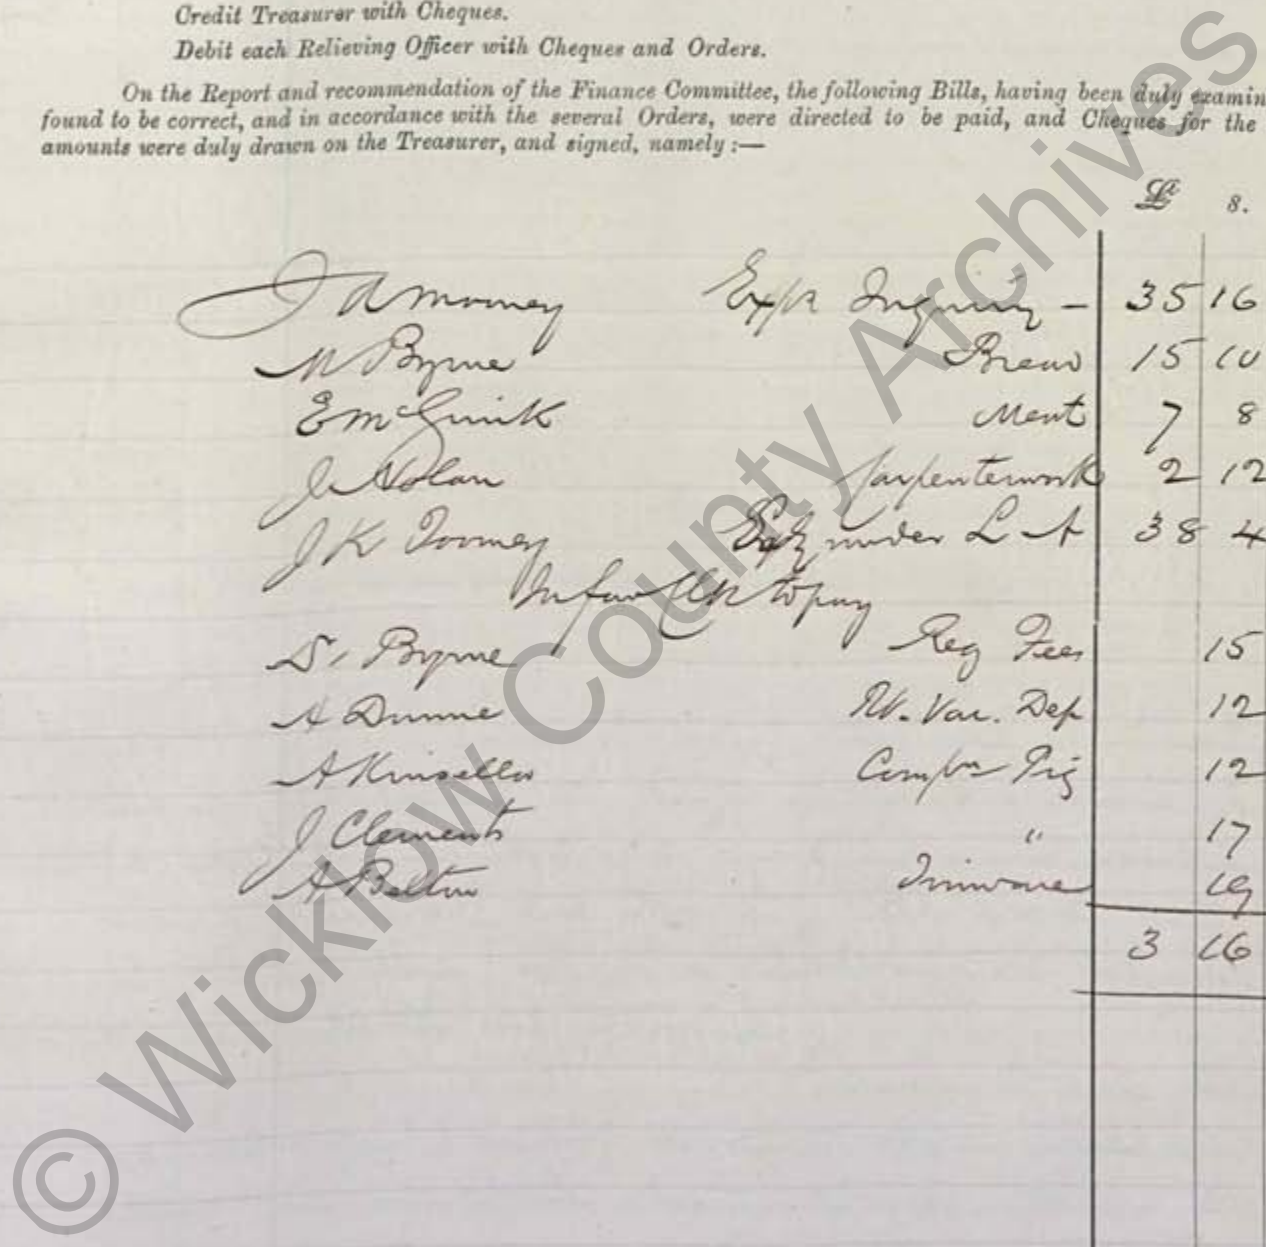 Credit Treasurer with Cheques.
Debit each Relieving Officer with Cheques and Orders.
On the Report and recommendation of the Finance Committee, the following Bills, having been duly examin
found to be correct, and in accordance with the several Orders, were directed to be paid, and Cheques for the
amounts were duly drawn on the Treasurer, and signed, namely :—
£ s.
J A Mooney Inquiry - 35 16
M Byrne Bread 15 10
E McGuirk Meat 7 8
J Nolan Carpenterwork 2 12
J K Toomey under L A 38 4
to pay
Dr Byrne Reg Fees 15
A Dunne Vac. Def 12
A Kinsella Compn Pig 12
J Clements " 17
A Belton Tinware 19
3 16
© Wicklow County Archives